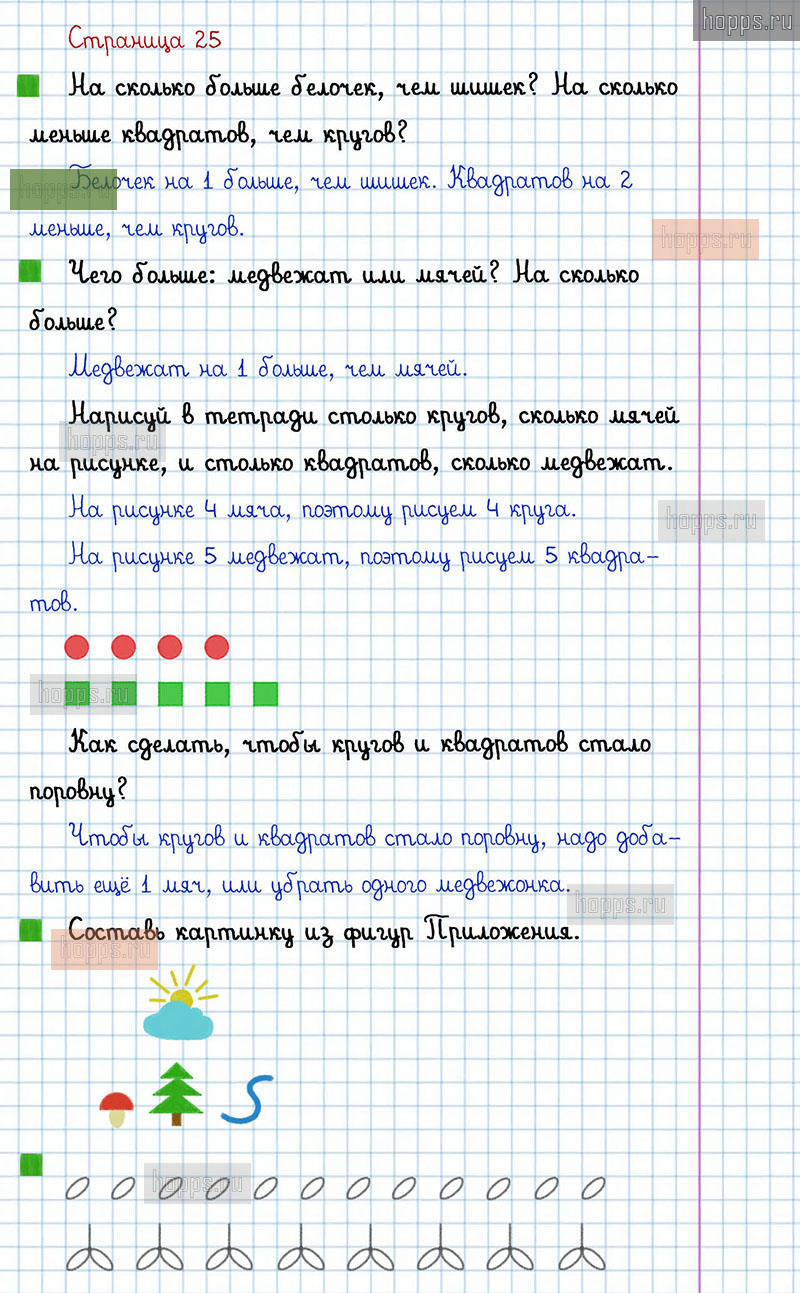 hopps.ru
Страница 25
На сколько больше белочек, чем шишек? На сколько
меньше квадратов, чем кругов?
Белочек на 1 больше, чем шишек. Квадратов на 2
hopps.ru
меньше, чем кругов.
hopps.ru
Чего больше: медвежат или мячей? На сколько
больше?
Медвежат на 1 больше, чем мячей.
Нарисуй в тетради столько кругов, сколько мячей
hopps.ru
на рисунке, и столько квадратов, сколько медвежат.
На рисунке 4 мяча, поэтому рисуем 4 круга.
hopps.ru
На рисунке 5 медвежат, поэтому рисуем 5 квадра-
тов.
hopps.ru
Как сделать, чтобы кругов и квадратов стало
поровну?
Чтобы кругов и квадратов стало поровну, надо доба-
вить ещё 1 мяч, или убрать одного медвежонка.
hopps.ru
Составь картинку из фигур Приложения.
hopps.ru
hopps.ru